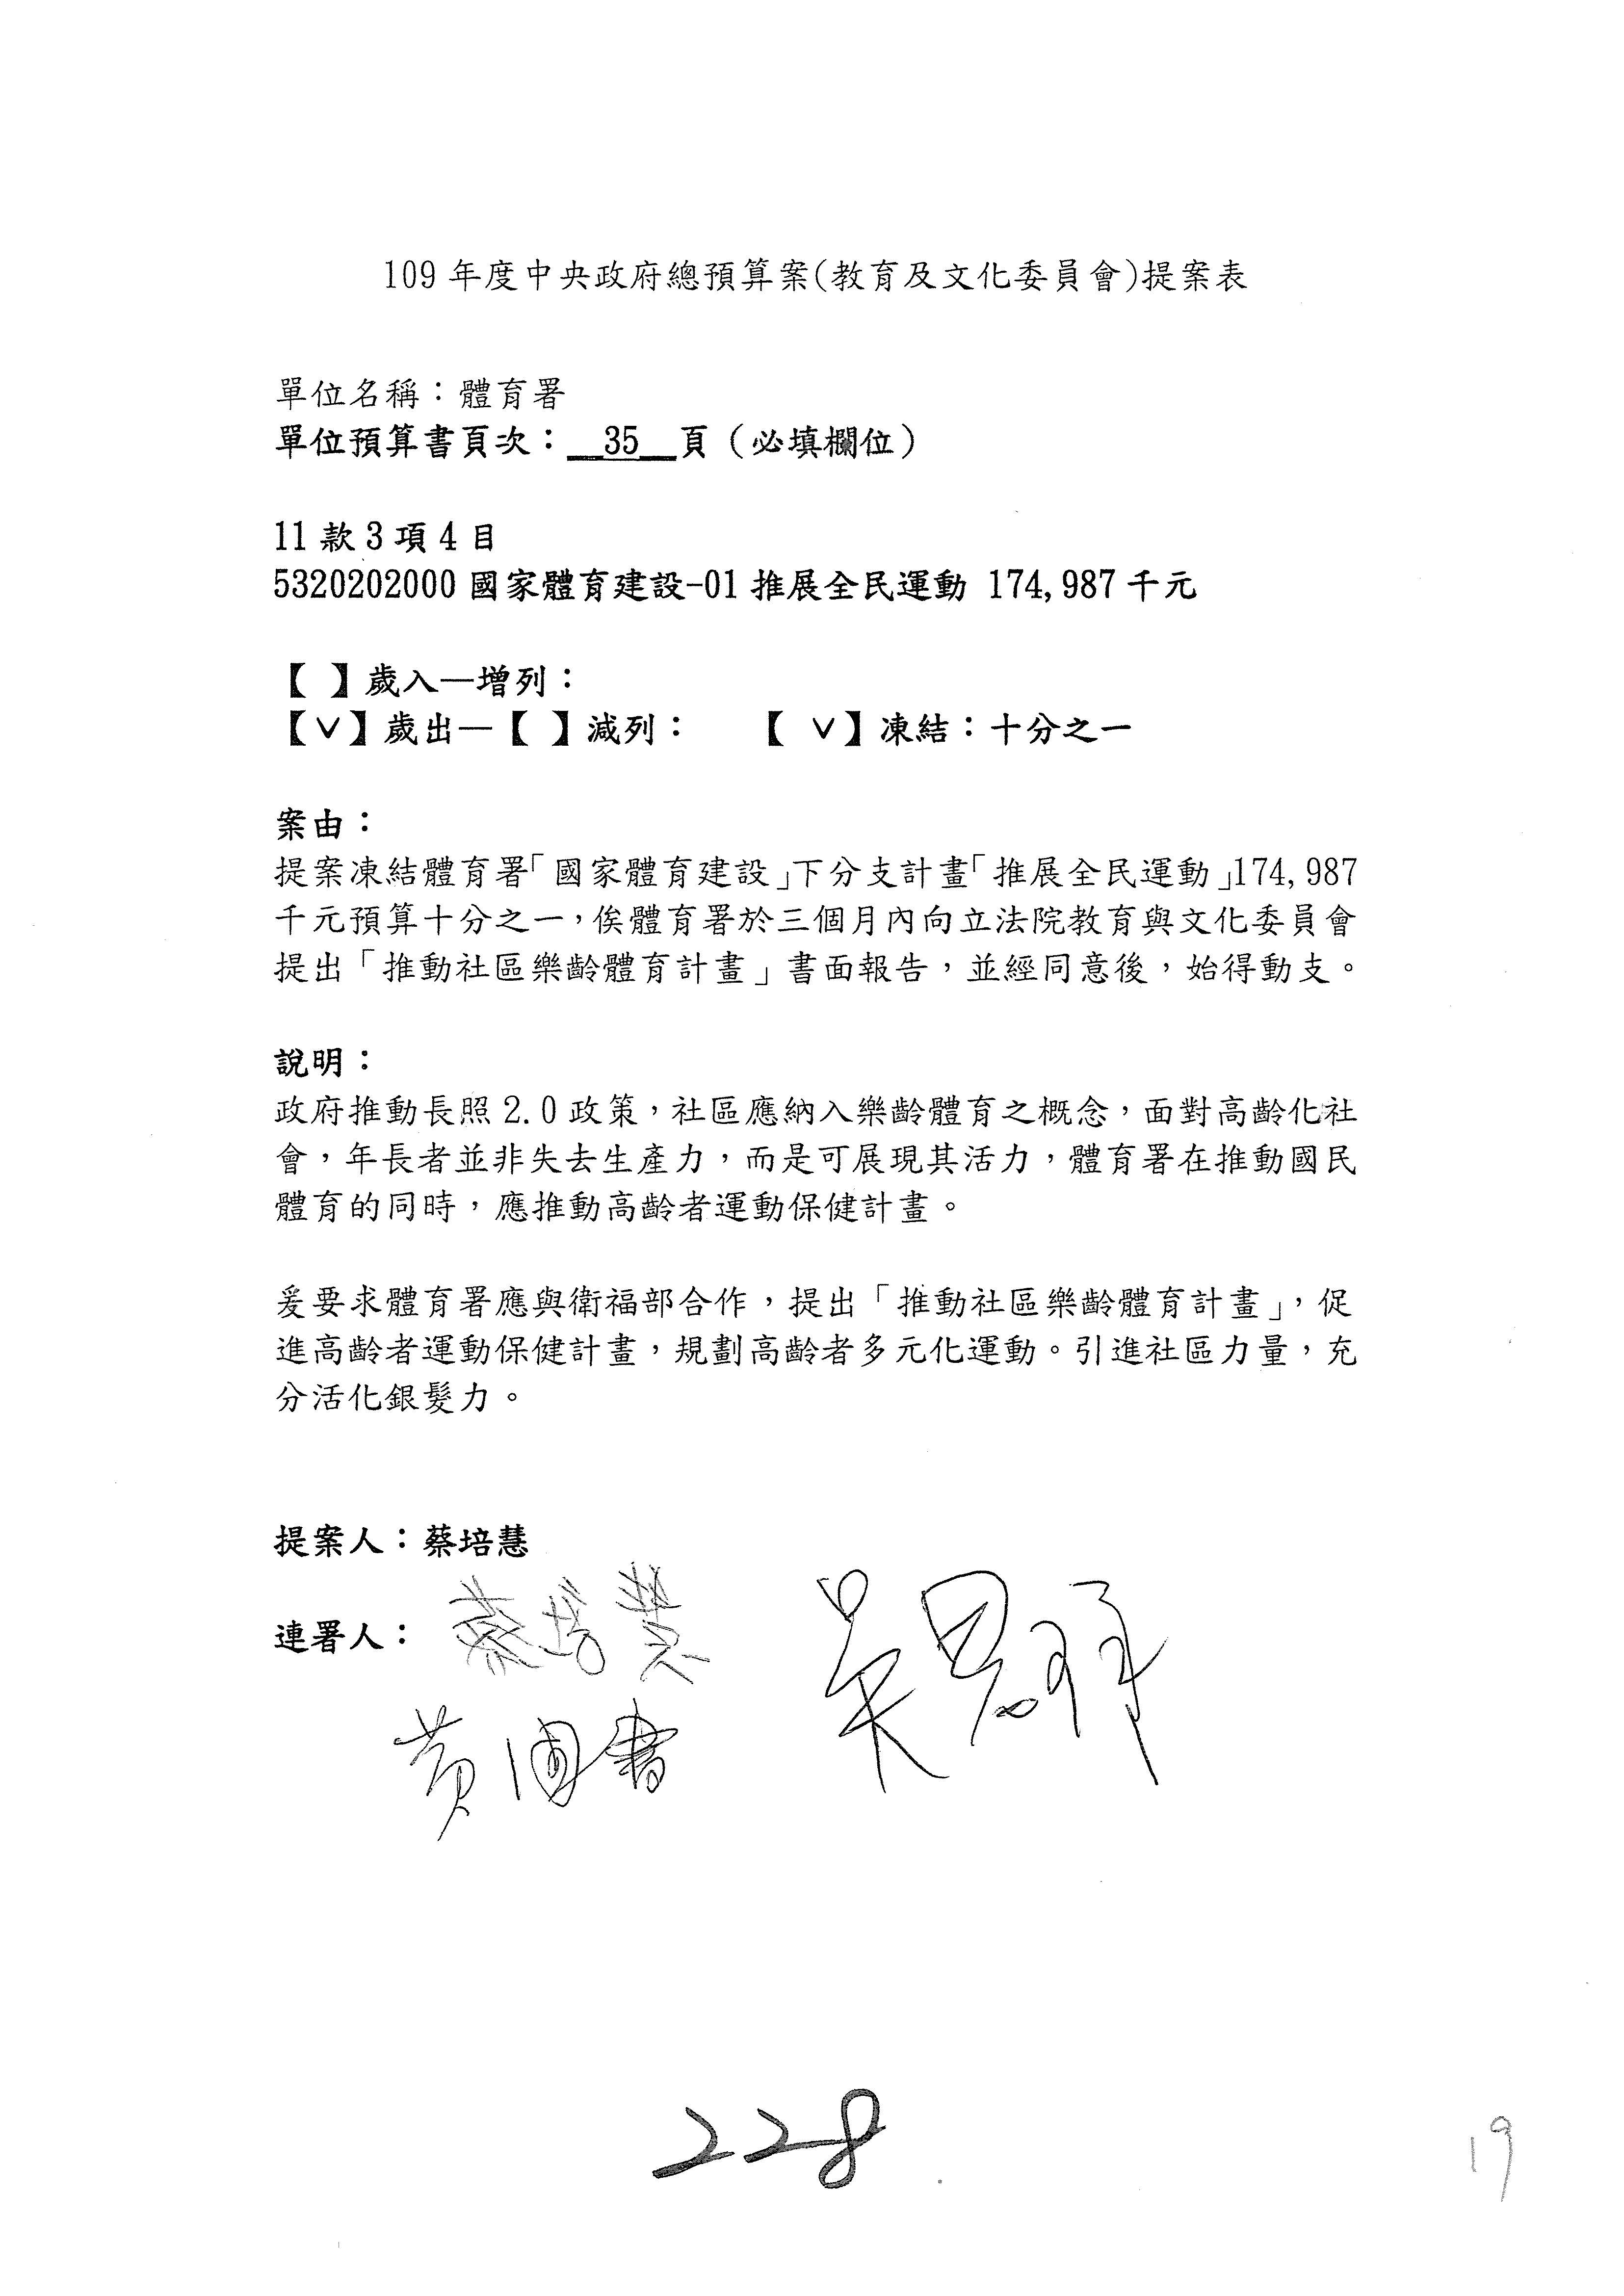 109 年度中央政府總預算案(教育及文化委員會)提案表
單位名稱：體育署
單位預算書頁次：__35__頁（必填欄位）
11 款 3 項 4 目
5320202000 國家體育建設-01 推展全民運動 174,987 千元
【 】歲入—增列：
【∨】歲出—【 】減列： 【 ∨】凍結：十分之一
案由：
提案凍結體育署「國家體育建設」下分支計畫「推展全民運動」174,987
千元預算十分之一，俟體育署於三個月內向立法院教育與文化委員會
提出「推動社區樂齡體育計畫」書面報告，並經同意後，始得動支。
說明：
政府推動長照 2.0 政策，社區應納入樂齡體育之概念，面對高齡化社
會，年長者並非失去生產力，而是可展現其活力，體育署在推動國民
體育的同時，應推動高齡者運動保健計畫。
爰要求體育署應與衛福部合作，提出「推動社區樂齡體育計畫」，促
進高齡者運動保健計畫，規劃高齡者多元化運動。引進社區力量，充
分活化銀髮力。
提案人：蔡培慧
連署人： 蔡培慧 吳思瑤
黃國書
228
19